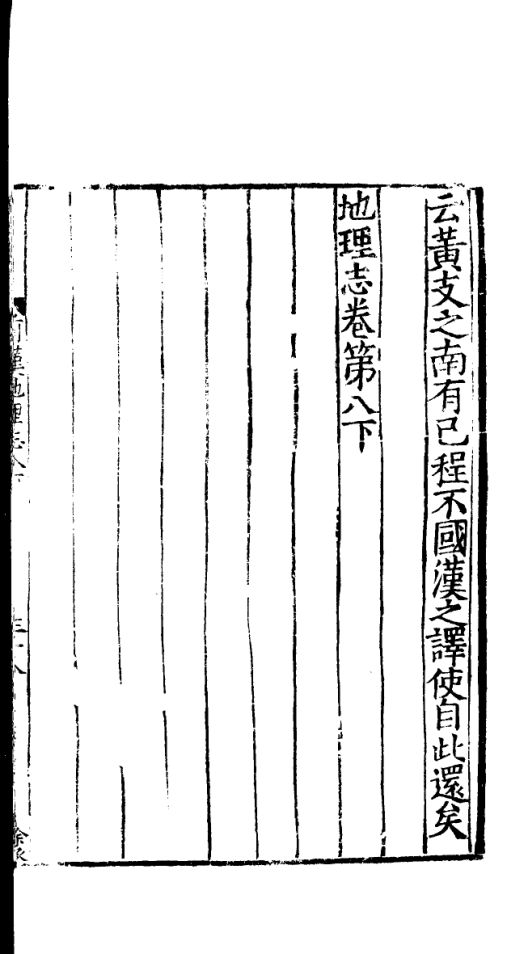 云黃支之南有已程不國漢之譯使自此還矣
地理志卷第八下
前漢地理志八下